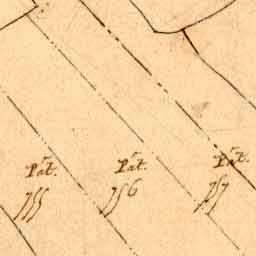 Pat.
755
Pat.
756
Pat.
757